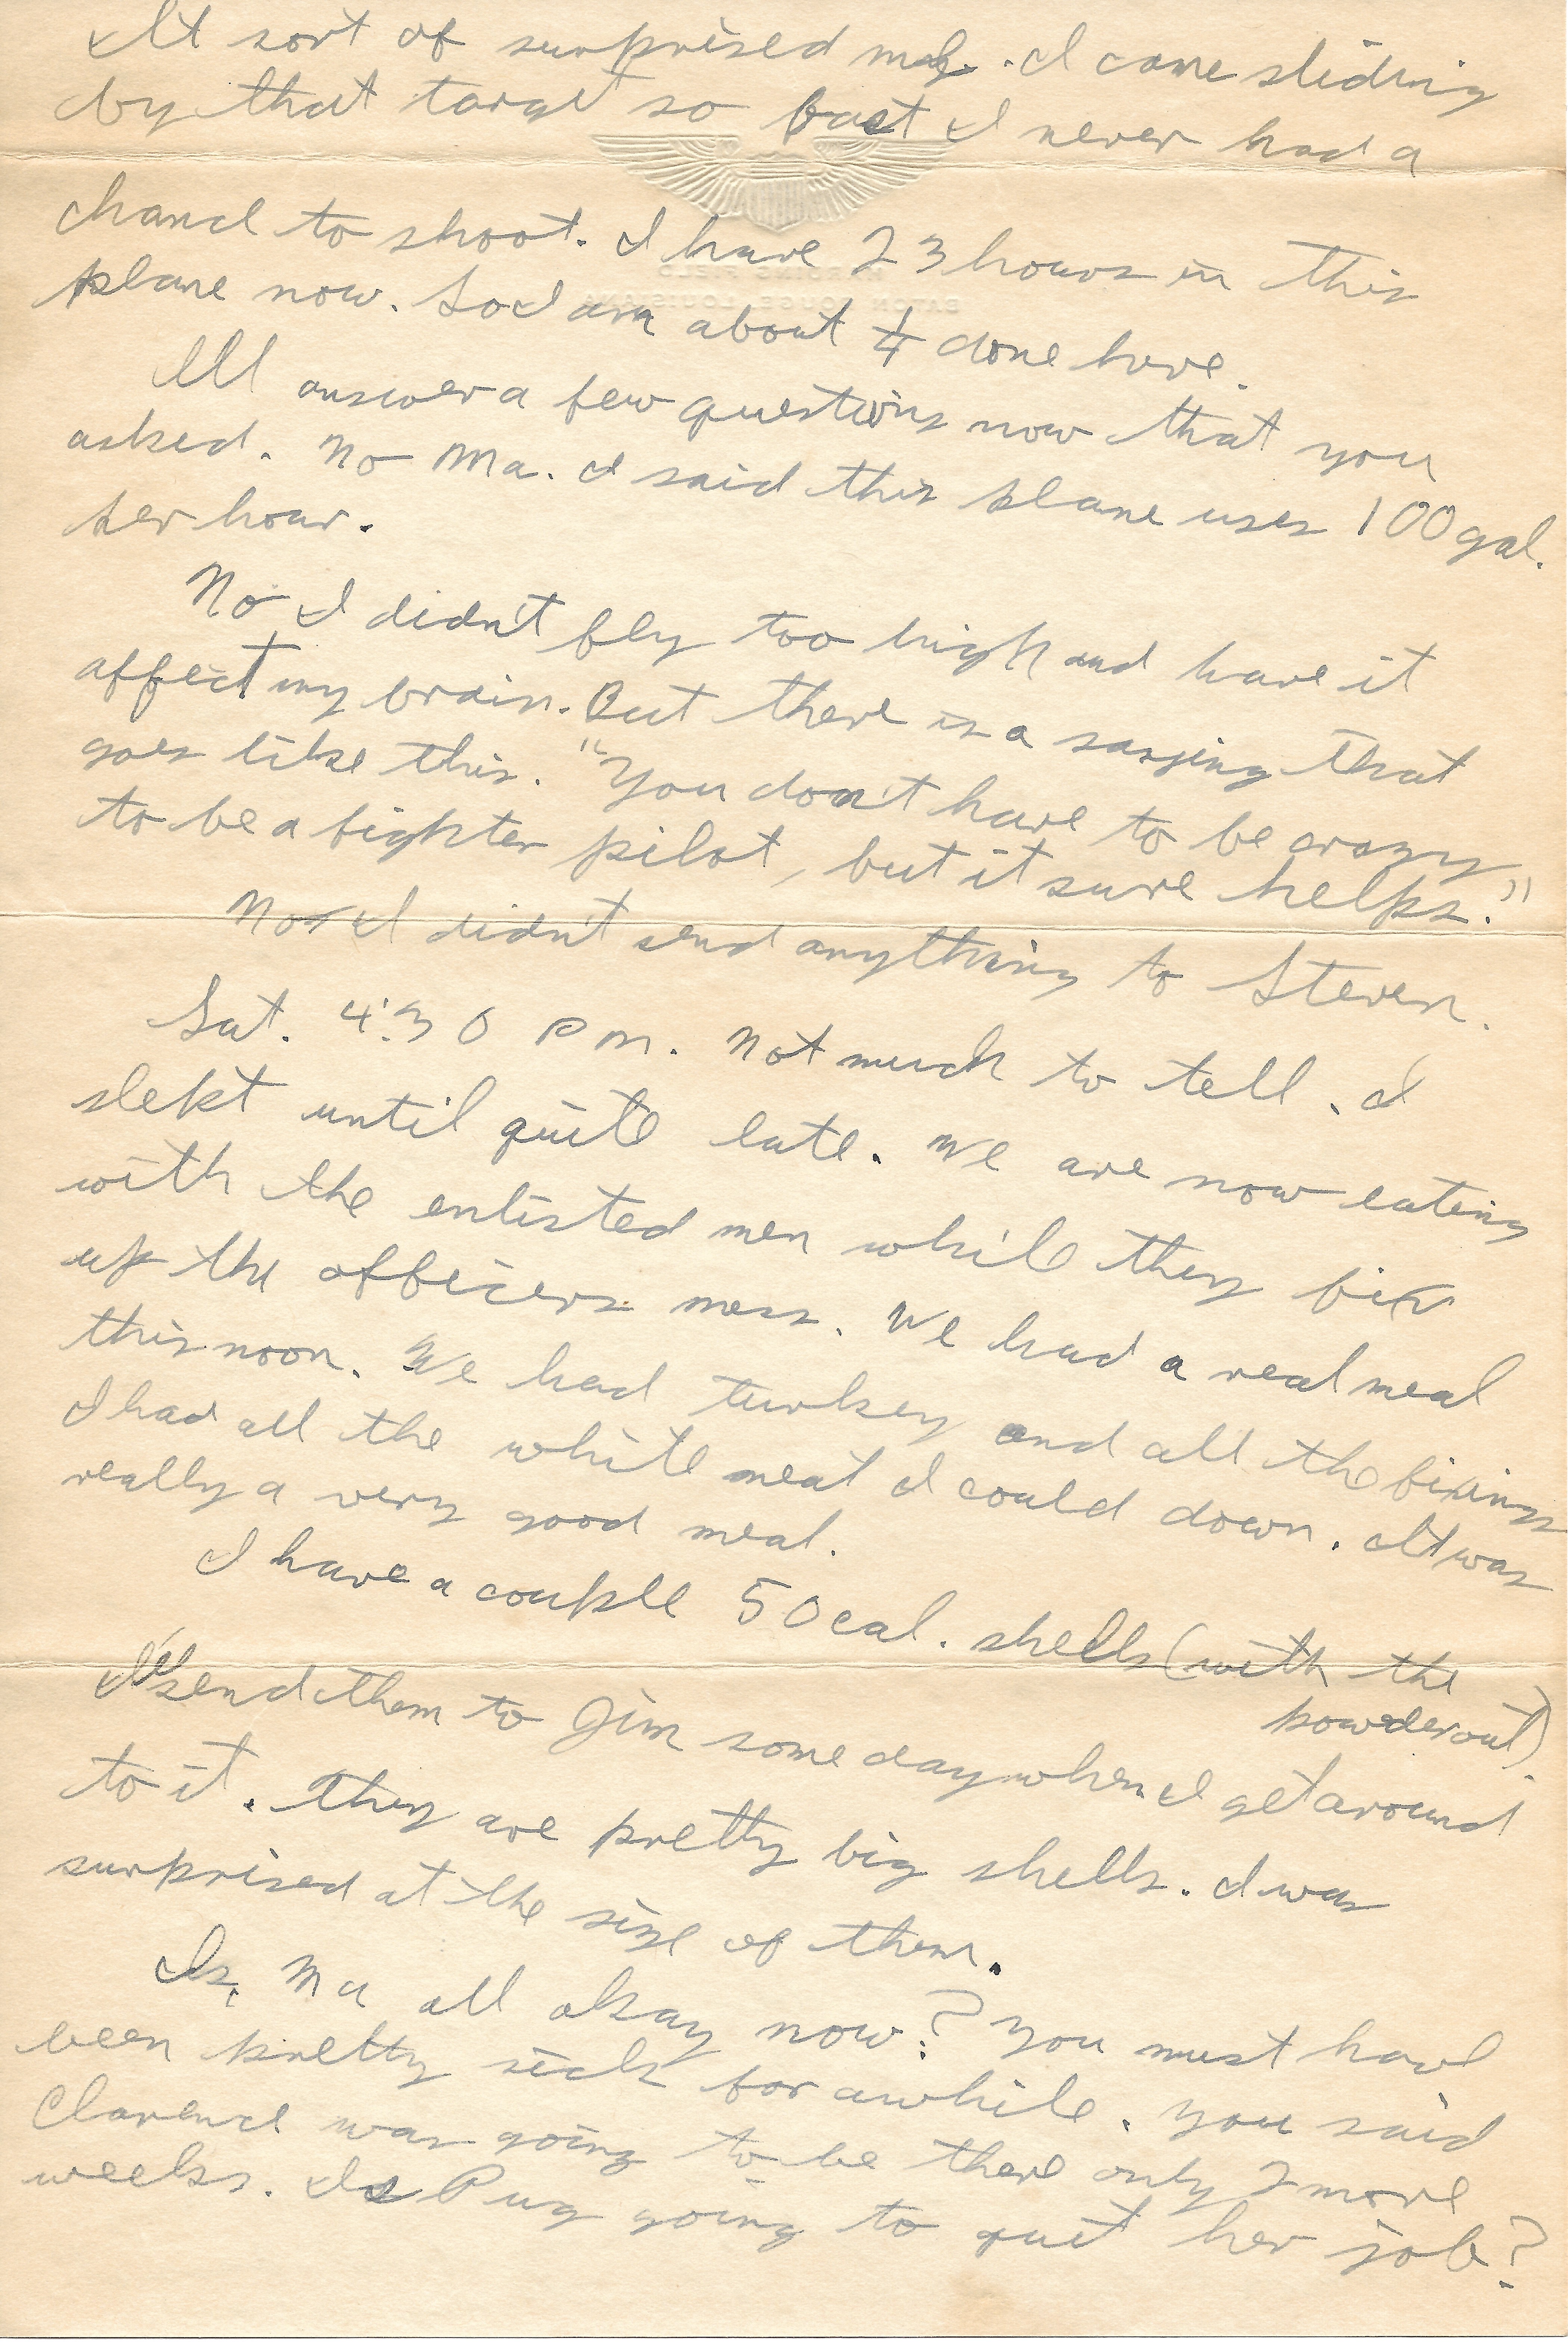 It sort of surprised me. I came sliding
by that target so fast I never had a
chance to shoot. I have 23 hours in this
plane now. So I am about done here.
I'll answer a few questions now that you
asked. No Ma. I said this plane uses 100 gal.
per hour.
No I didn't fly too high and have it
affect my brain. But there is a saying that
goes like this. "You don't have to be crazy
to be a fighter pilot, but it sure helps."
No I didn't send anything to Steven.
Sat. 4:30 PM. Not much to tell. I
slept until quite late. We are now eating
with the enlisted men while they fix
up the officers mess. We had a real meal
this noon. We had turkey and all the fixings
I had all the white meat I could down. It was
really a very good meal.
I have a couple 50 cal. shells (with the
powder out).
I'll send them to Jim some day when I get around
to it. They are pretty big shells. I was
surprised at the size of them.
Is Ma all okay now? You must have
been pretty sick for awhile. You said
Clarence was going to be there only 2 more
weeks. Is Pug going to quit her job?